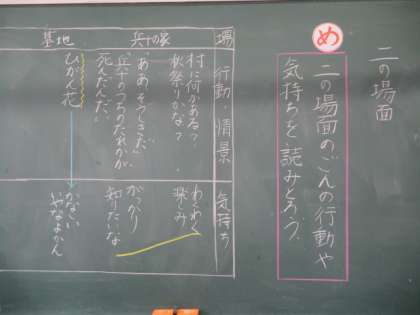 二の場面
め
二の場面のごんの行動や
気持ちを読みとろう。
場 行動・情景 気持ち
村に何かある?
秋祭りかな?
わくわく
楽しみ
兵十の家
「ああ、そう式だ」
兵十のうちのだれが
死んだんだ
がっかり
知りたいな
墓地
ひがん花
かなしい
いやなよかん